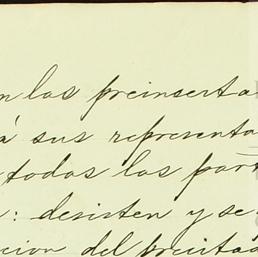 n las preinserta
á sus representa
todas las part
: desisten y se
cion del precitad